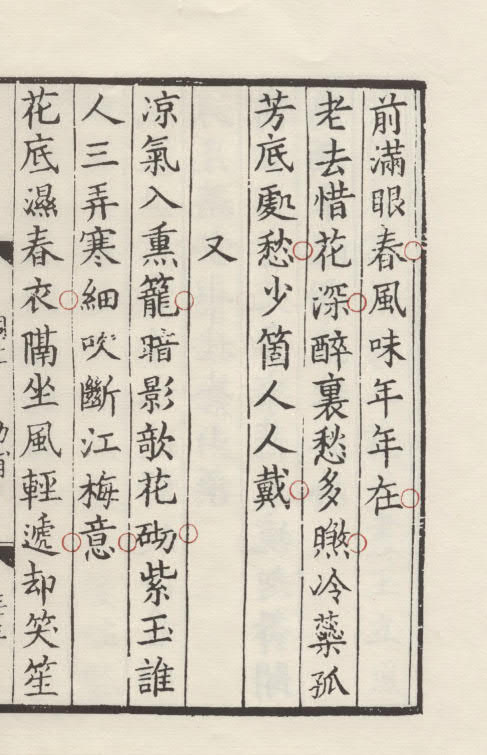 前滿眼春風味年年在
老去惜花深醉裏愁多冷蘂孤
芳底處愁少箇人人戴
又
凉氣入熏籠暗影欹花砌紫玉誰
人三弄寒細吹斷江梅意
花底濕春衣隔坐風輕遞却笑笙